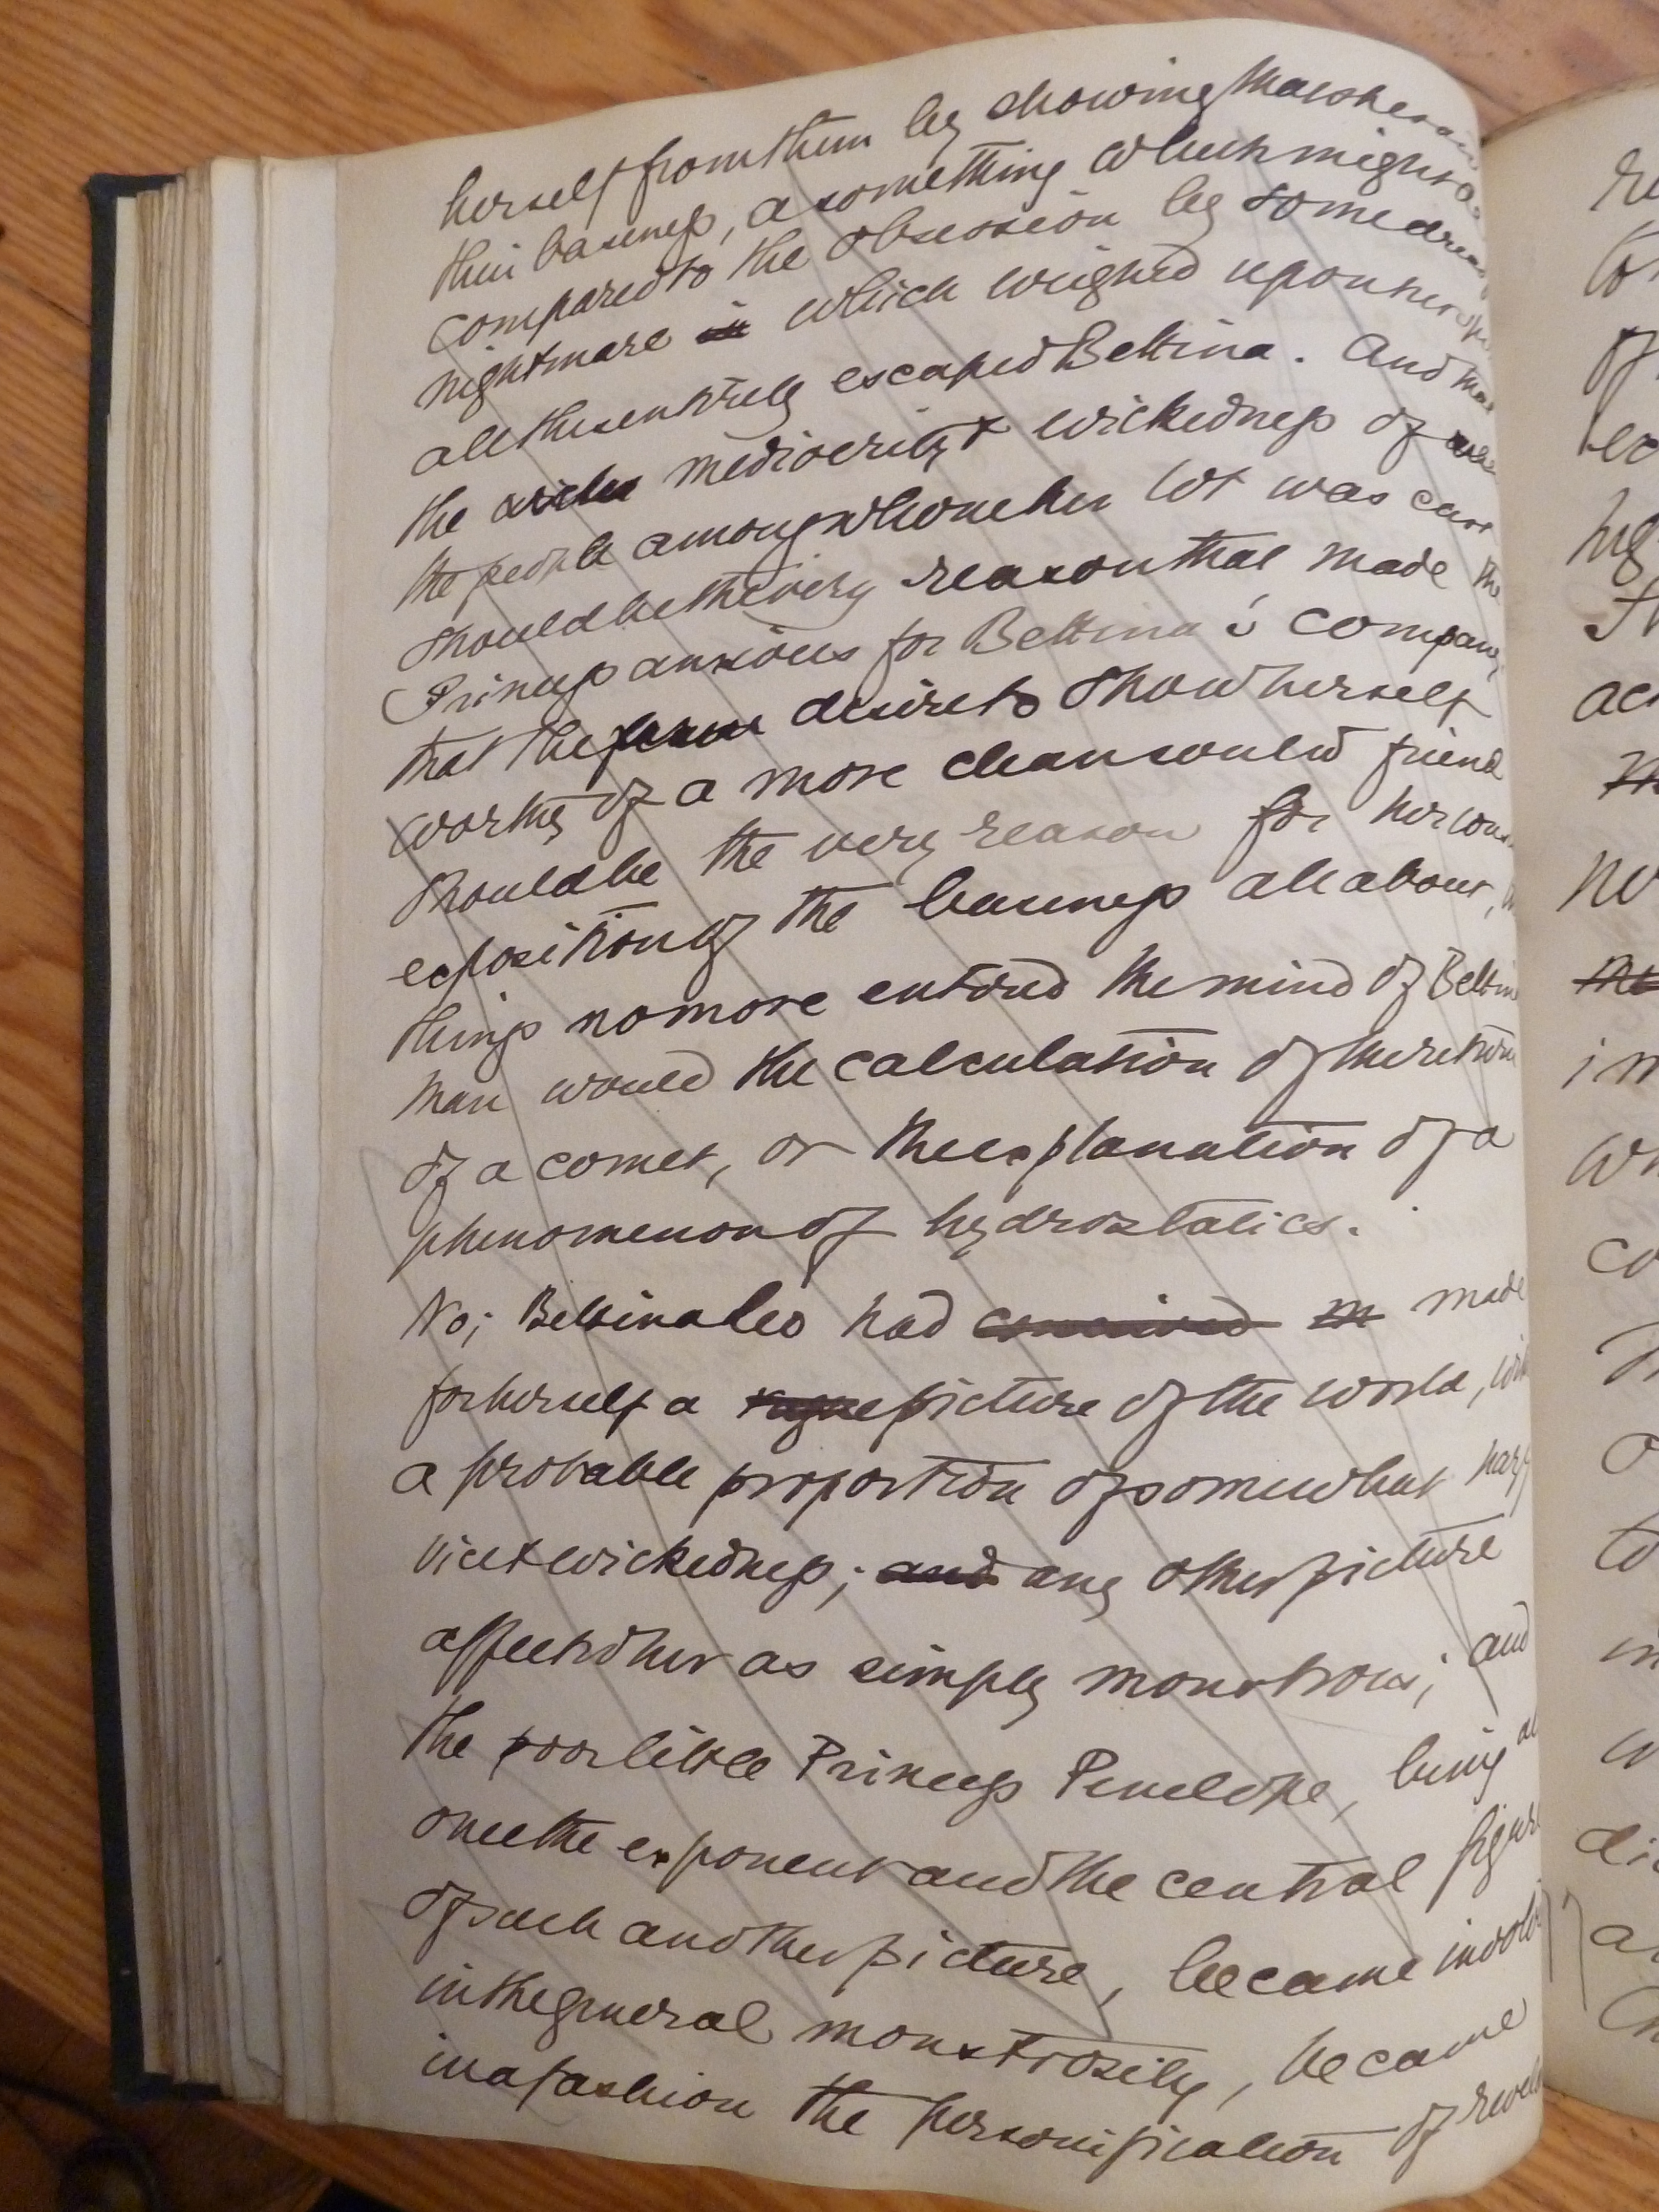 herself from them by showing
their baseness, a something which might
compared to the obsession by some
nightmare in which weighed upon her
all these entirely escaped Bettina. And that
the mediocrity & wickedness of
the people among whom her lot was cast
should be the very reason that made the
Princess anxious for Bettina's company,
that the desire to show herself
worthy of a more clean souled friend
should be the very reason for her
exposition of the baseness all about,
things no more entered the mind of Bettina
than would the calculation of the return
of a comet, or the explanation of a
phenomenon of hydrostatics.
No; Bettina Leo had conceived made
for herself a vague picture of the world, with
a probable proportion of somewhat
vice & wickedness; and any other picture
affected her as simply monstrous; and
the poor little Princess Penelope, being at
once the exponent and the central figure
of such another picture, became
in the general monstrosity, became
in a fashion the personification of